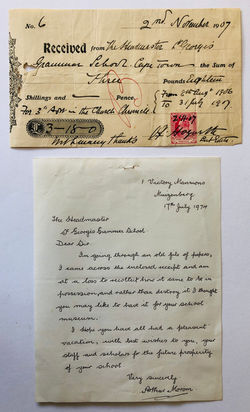 No. 6 2nd November 1907
Received from The Headmaster St George's
Grammar School Cape Town the Sum of
Three Pounds Eighteen
Shillings and Pence From 8th Augt 1906
For 3" Advt in the Church Chronicle To 31 July 1907
£ 3-18-0
With many thanks
1 Victory Mansions
Muizenberg
17th July 1974
The Headmaster
St George's Grammar School
Dear Sir
In going through an old file of papers,
I came across the enclosed receipt and am
at a loss to recollect how it came to be in
my possession, and rather than destroy it I thought
you may like to have it for your school
museum.
I hope you have all had a pleasant
vacation, with best wishes to you, your
staff and scholars for the future prosperity
of your school
Very sincerely
Arthur